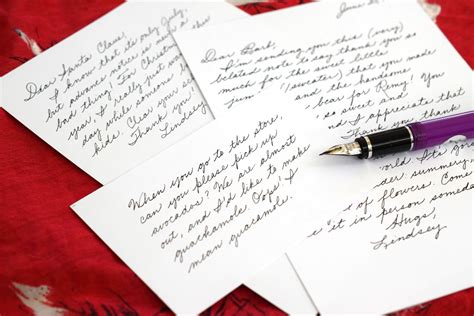 Dear Santa Claus,
I know that its only July,
but advance notice is never a
bad thing! For Christmas this
year, I really just want
day while someone
kids. Clear your
Thank you!
Lindsey
June
Dear Barb,
I'm sending you this (very)
belated note to say thank you so
much for the sweet little
(sweater) that you made
and the handsome
bear for Remy! You
so sweet and
I appreciate that
Thank you
When you go to the store,
can you please pick up
avocados? We are almost
out, and I'd like to make
guachamole. Oops! I
mean guacamole.
Its
summery.
of flowers. Come
it in person
Hugs,
Lindsey